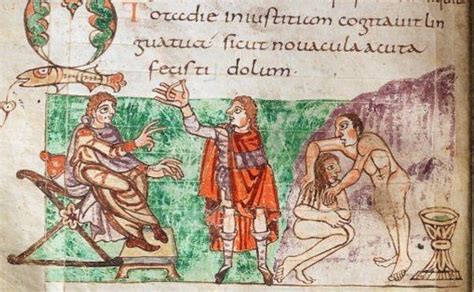 Totadie iniustitiam cogitauit lin
guatua sicut nouacula acuta
fecisti dolum.